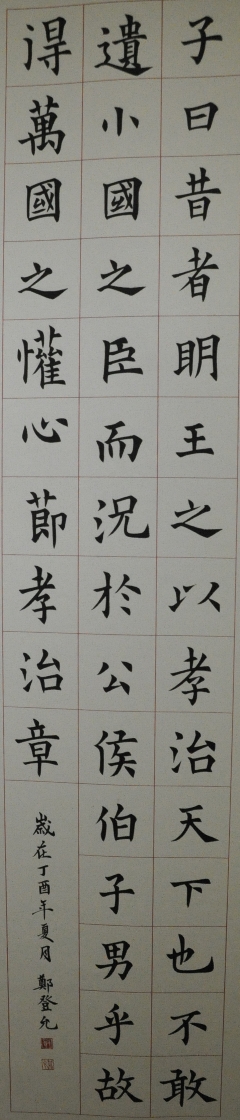 子曰昔者明王之以孝治天下也不敢
遺小國之臣而況於公侯伯子男乎故
得萬國之懽心節孝治章
歲在丁酉年夏月 鄭登允